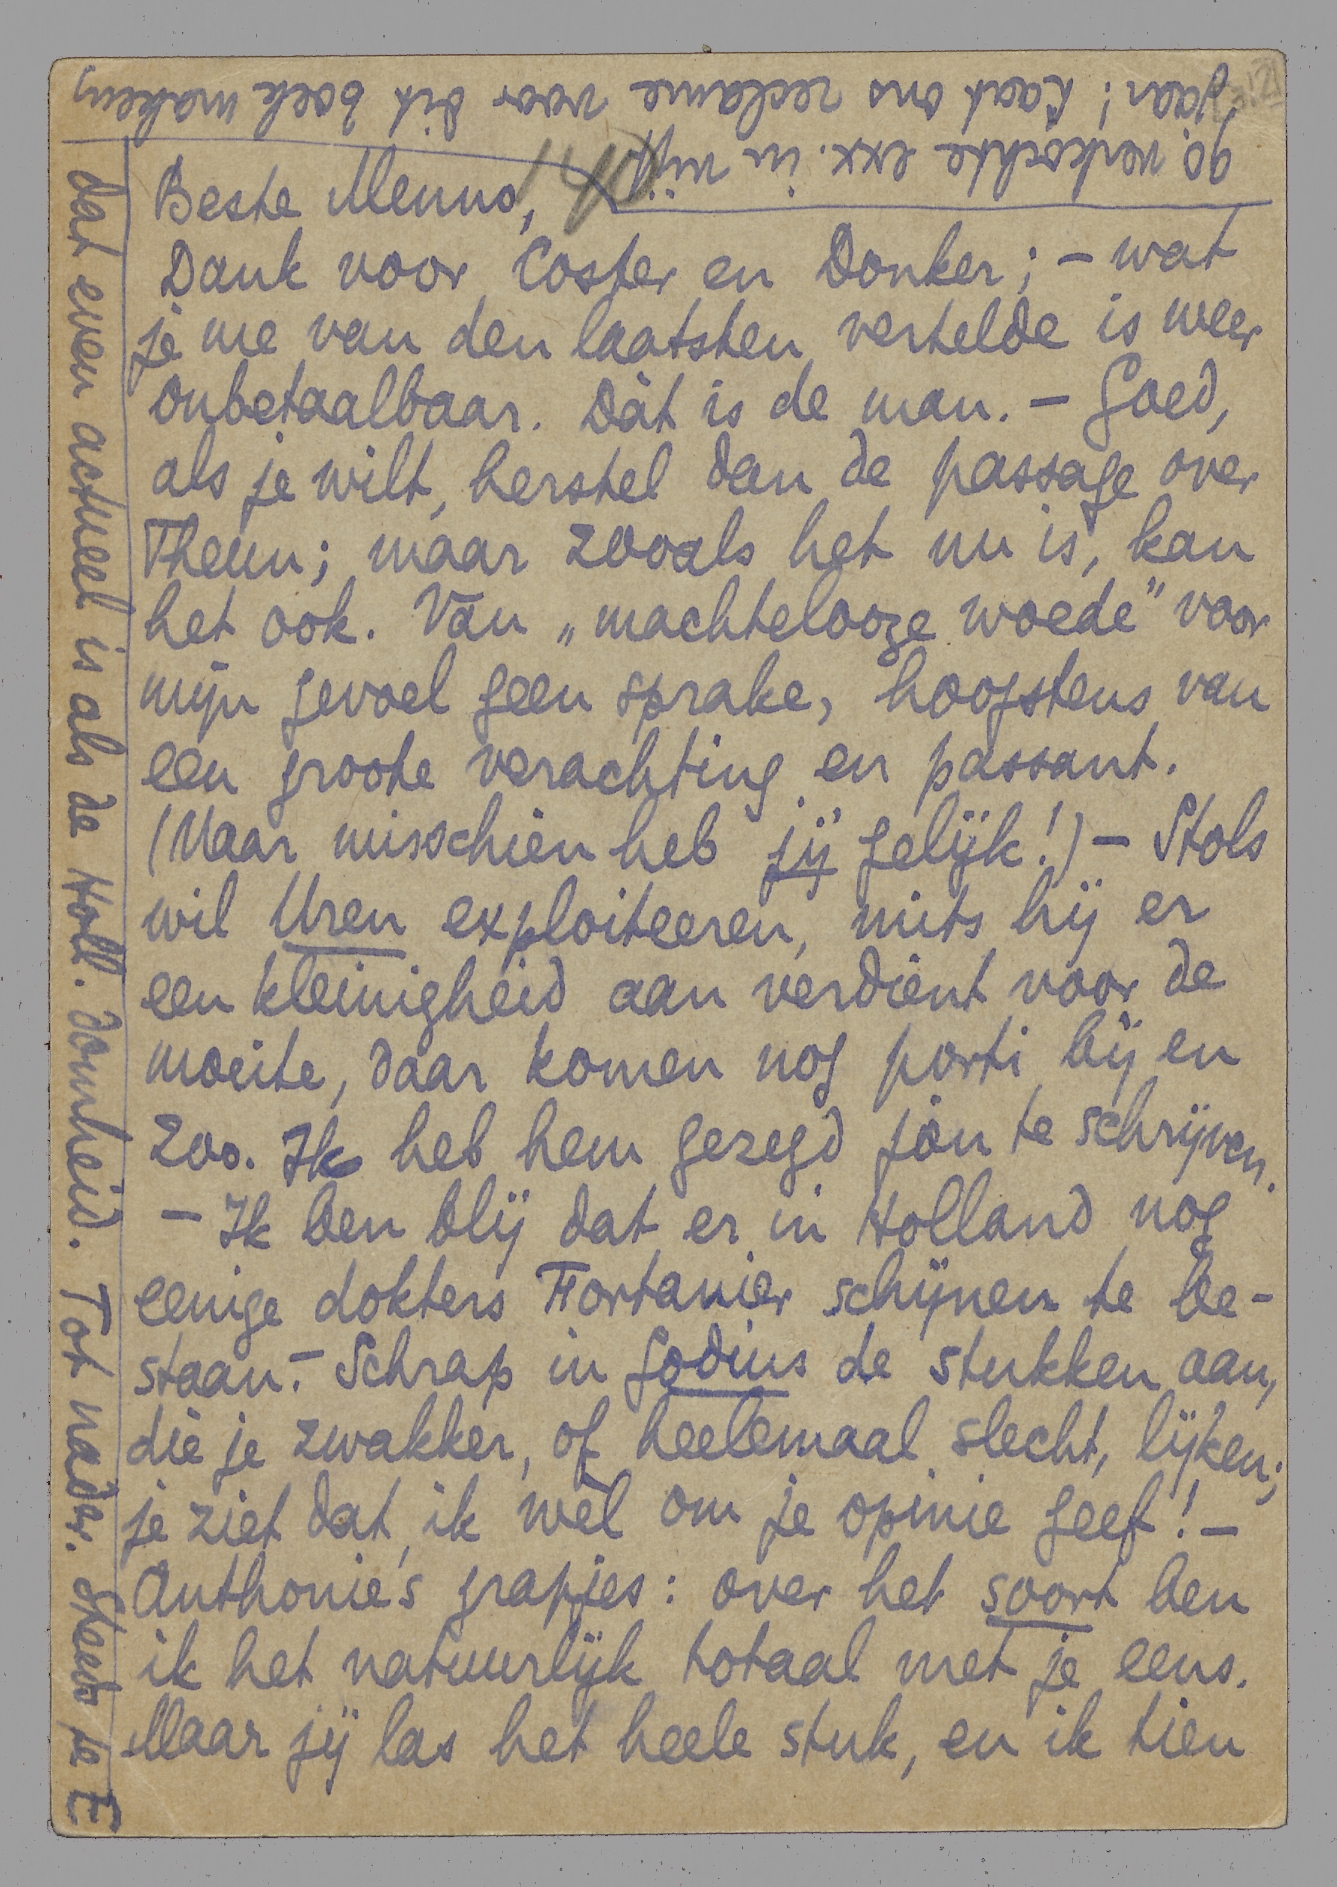 Beste Menno,
Dank voor Coster en Donker; – wat
je me van den laatsten vertelde is weer
onbetaalbaar. Dàt is de man. – Goed,
als je wilt, herstel dan de passage over
Theun; maar zooals het nu is, kan
het ook. Van „machtelooze woede" voor
mijn gevoel geen sprake, hoogstens van
een groote verachting en passant.
(Maar misschien heb jij gelijk!) – Stols
wil Uren exploiteeren, mits hij er
een kleinigheid aan verdient voor de
moeite, daar komen nog porti bij en
zoo. Ik heb hem gezegd jou te schrijven.
– Ik ben blij dat er in Holland nog
eenige dokters Fortanier schijnen te be-
staan. – Schrap in Godius de stukken aan,
die je zwakker, of heelemaal slecht, lijken;
je ziet dat ik wèl om je opinie geef! –
Anthonie's grapjes: over het soort ben
ik het natuurlijk totaal met je eens.
Maar jij las het heele stuk, en ik tien
90 verkochte exx. in vijf
jaar; laat ons reclame voor dit boek maken,
dat even actueel is als de Holl. domheid. Tot nader. Steeds je E
140